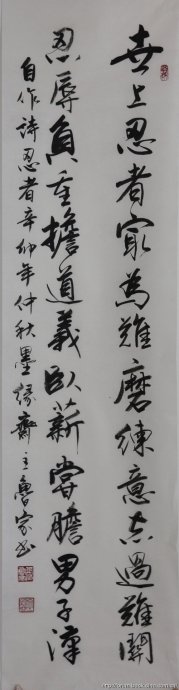 世上忍者最为難磨練意志過難關
忍辱負重擔道義卧薪尝膽男子漢
自作詩忍者辛卯年仲秋墨緣齋主魯家书